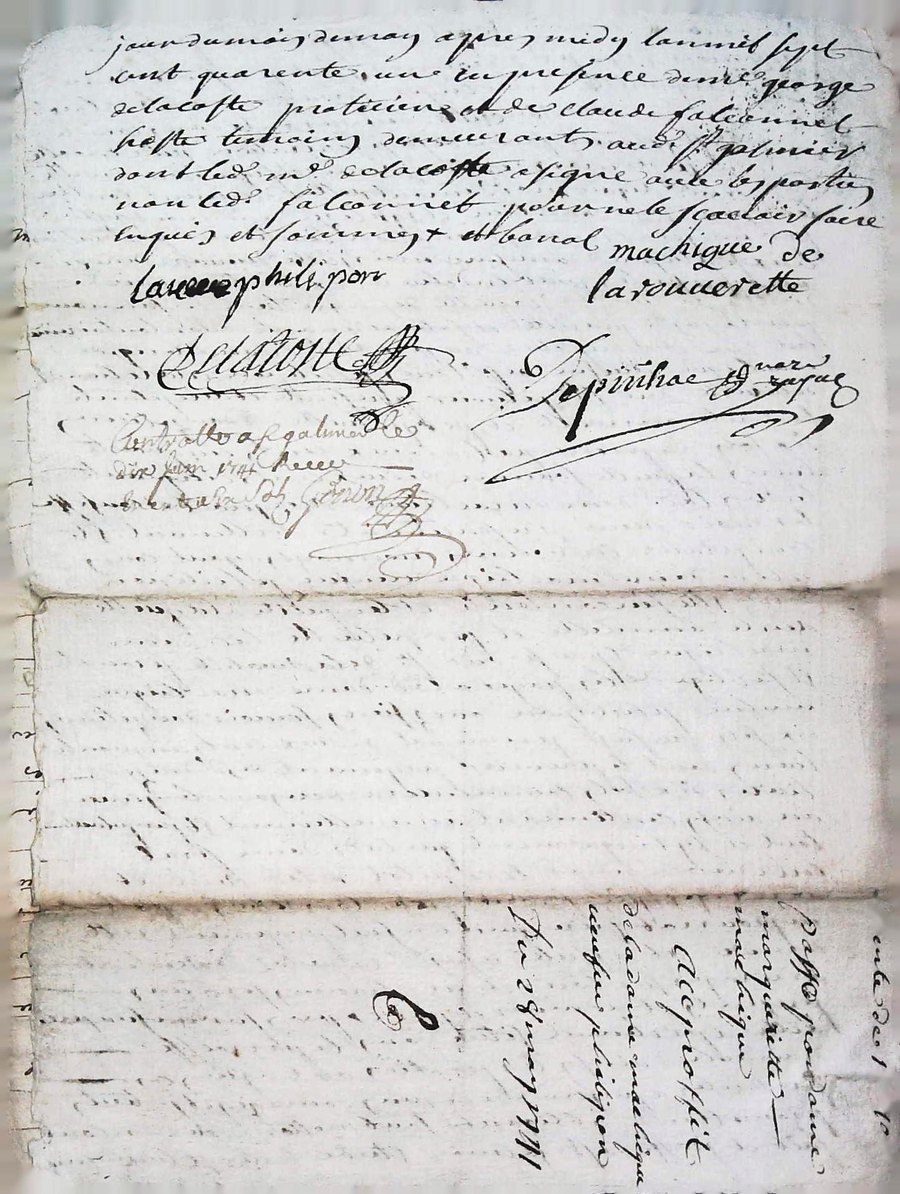 jour du mois de may apres midy lan mil sept
cent quarente un en presence de me. george
delacoste praticien et de claude falconnet
hoste temoins demeurants aud. st galmier
dont led. me. delacoste a signe avec les parties
non led. falconnet pour ne le scavoir faire
enquis et sommes + et
machique de
la veuve philipon
larouuerette
Delacoste
Depinhac
Controllé a st galmier le
dix juin 1741 Receu
Gonon
passé pour dame
margueritte
machique
Au proffit
de la dame machique
veufve philipon
Du 28 may 1741